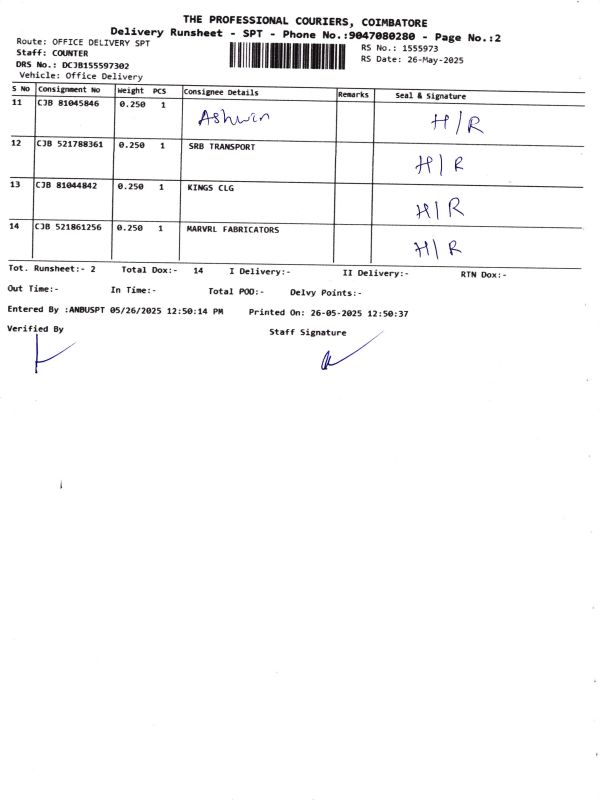 THE PROFESSIONAL COURIERS, COIMBATORE
Delivery Runsheet - SPT - Phone No.:9047080280 - Page No.:2
Route: OFFICE DELIVERY SPT
Staff: COUNTER
DRS No.: DCJB155597302
Vehicle: Office Delivery
RS No.: 1555973
RS Date: 26-May-2025
S No Consignment No Weight PCS Consignee Details Remarks Seal & Signature
11 CJB 81045846 0.250 1 Ashwin H/R
12 CJB 521788361 0.250 1 SRB TRANSPORT H/R
13 CJB 81044842 0.250 1 KINGS CLG H/R
14 CJB 521861256 0.250 1 MARVRL FABRICATORS H/R
Tot. Runsheet:- 2 Total Dox:- 14 I Delivery:- II Delivery:- RTN Dox:-
Out Time:- In Time:- Total POD:- Delvy Points:-
Entered By :ANBUSPT 05/26/2025 12:50:14 PM Printed On: 26-05-2025 12:50:37
Verified By Staff Signature